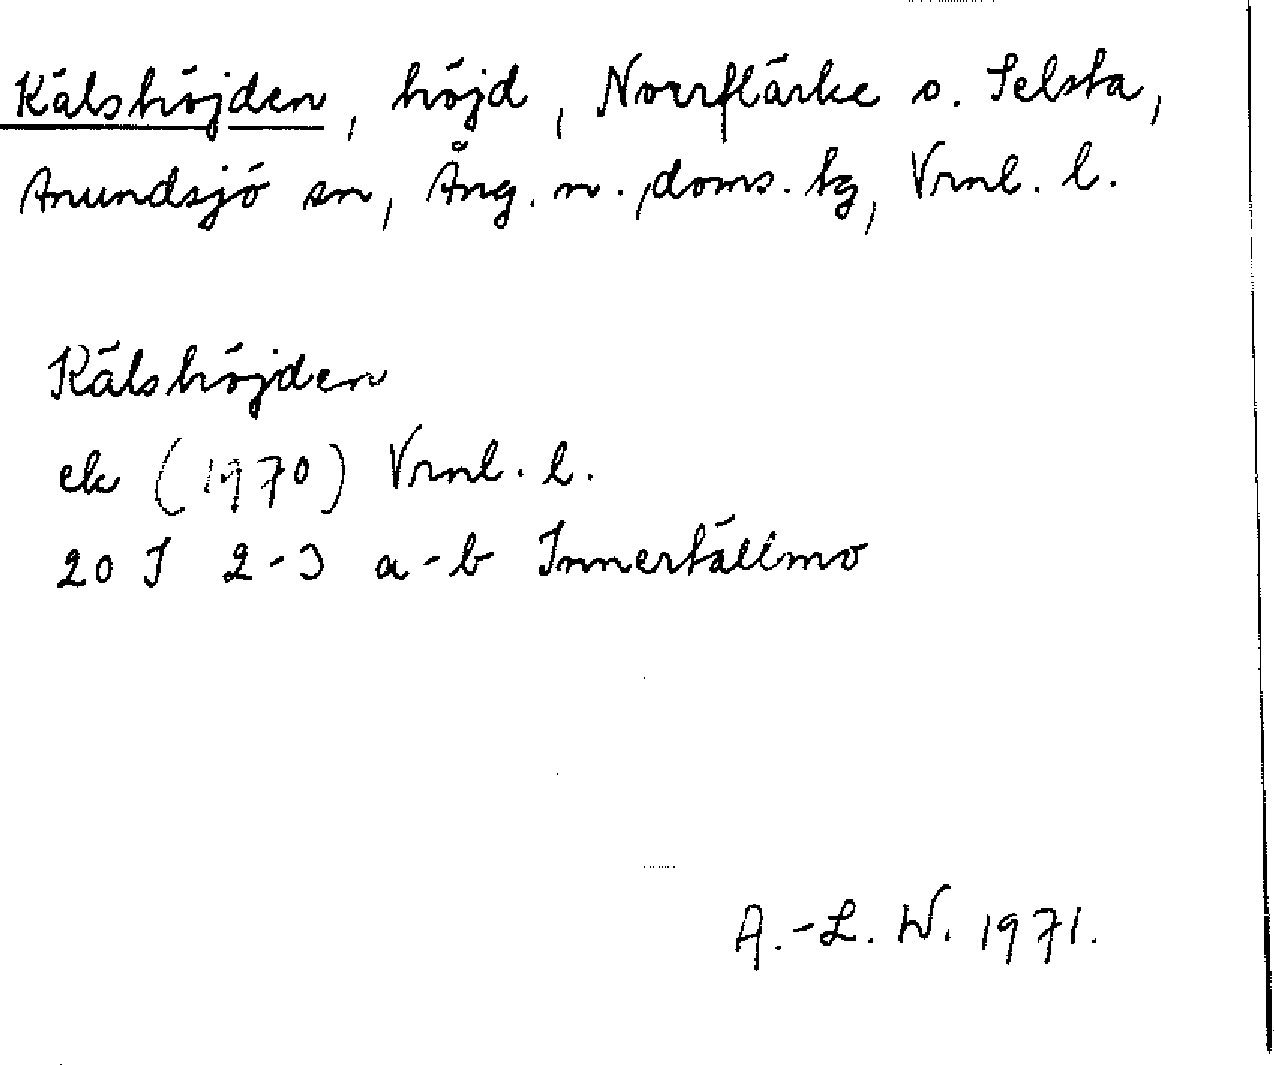 Kälshöjden, höjd, Norrflärke o. Selsta,
Anundsjö sn, Ång. n. doms. tg, Vrnl. l.
Kälshöjden
ek (1970) Vrnl. l.
20 I 2-3 a-b Innertällmo
A.-L. W. 1971.